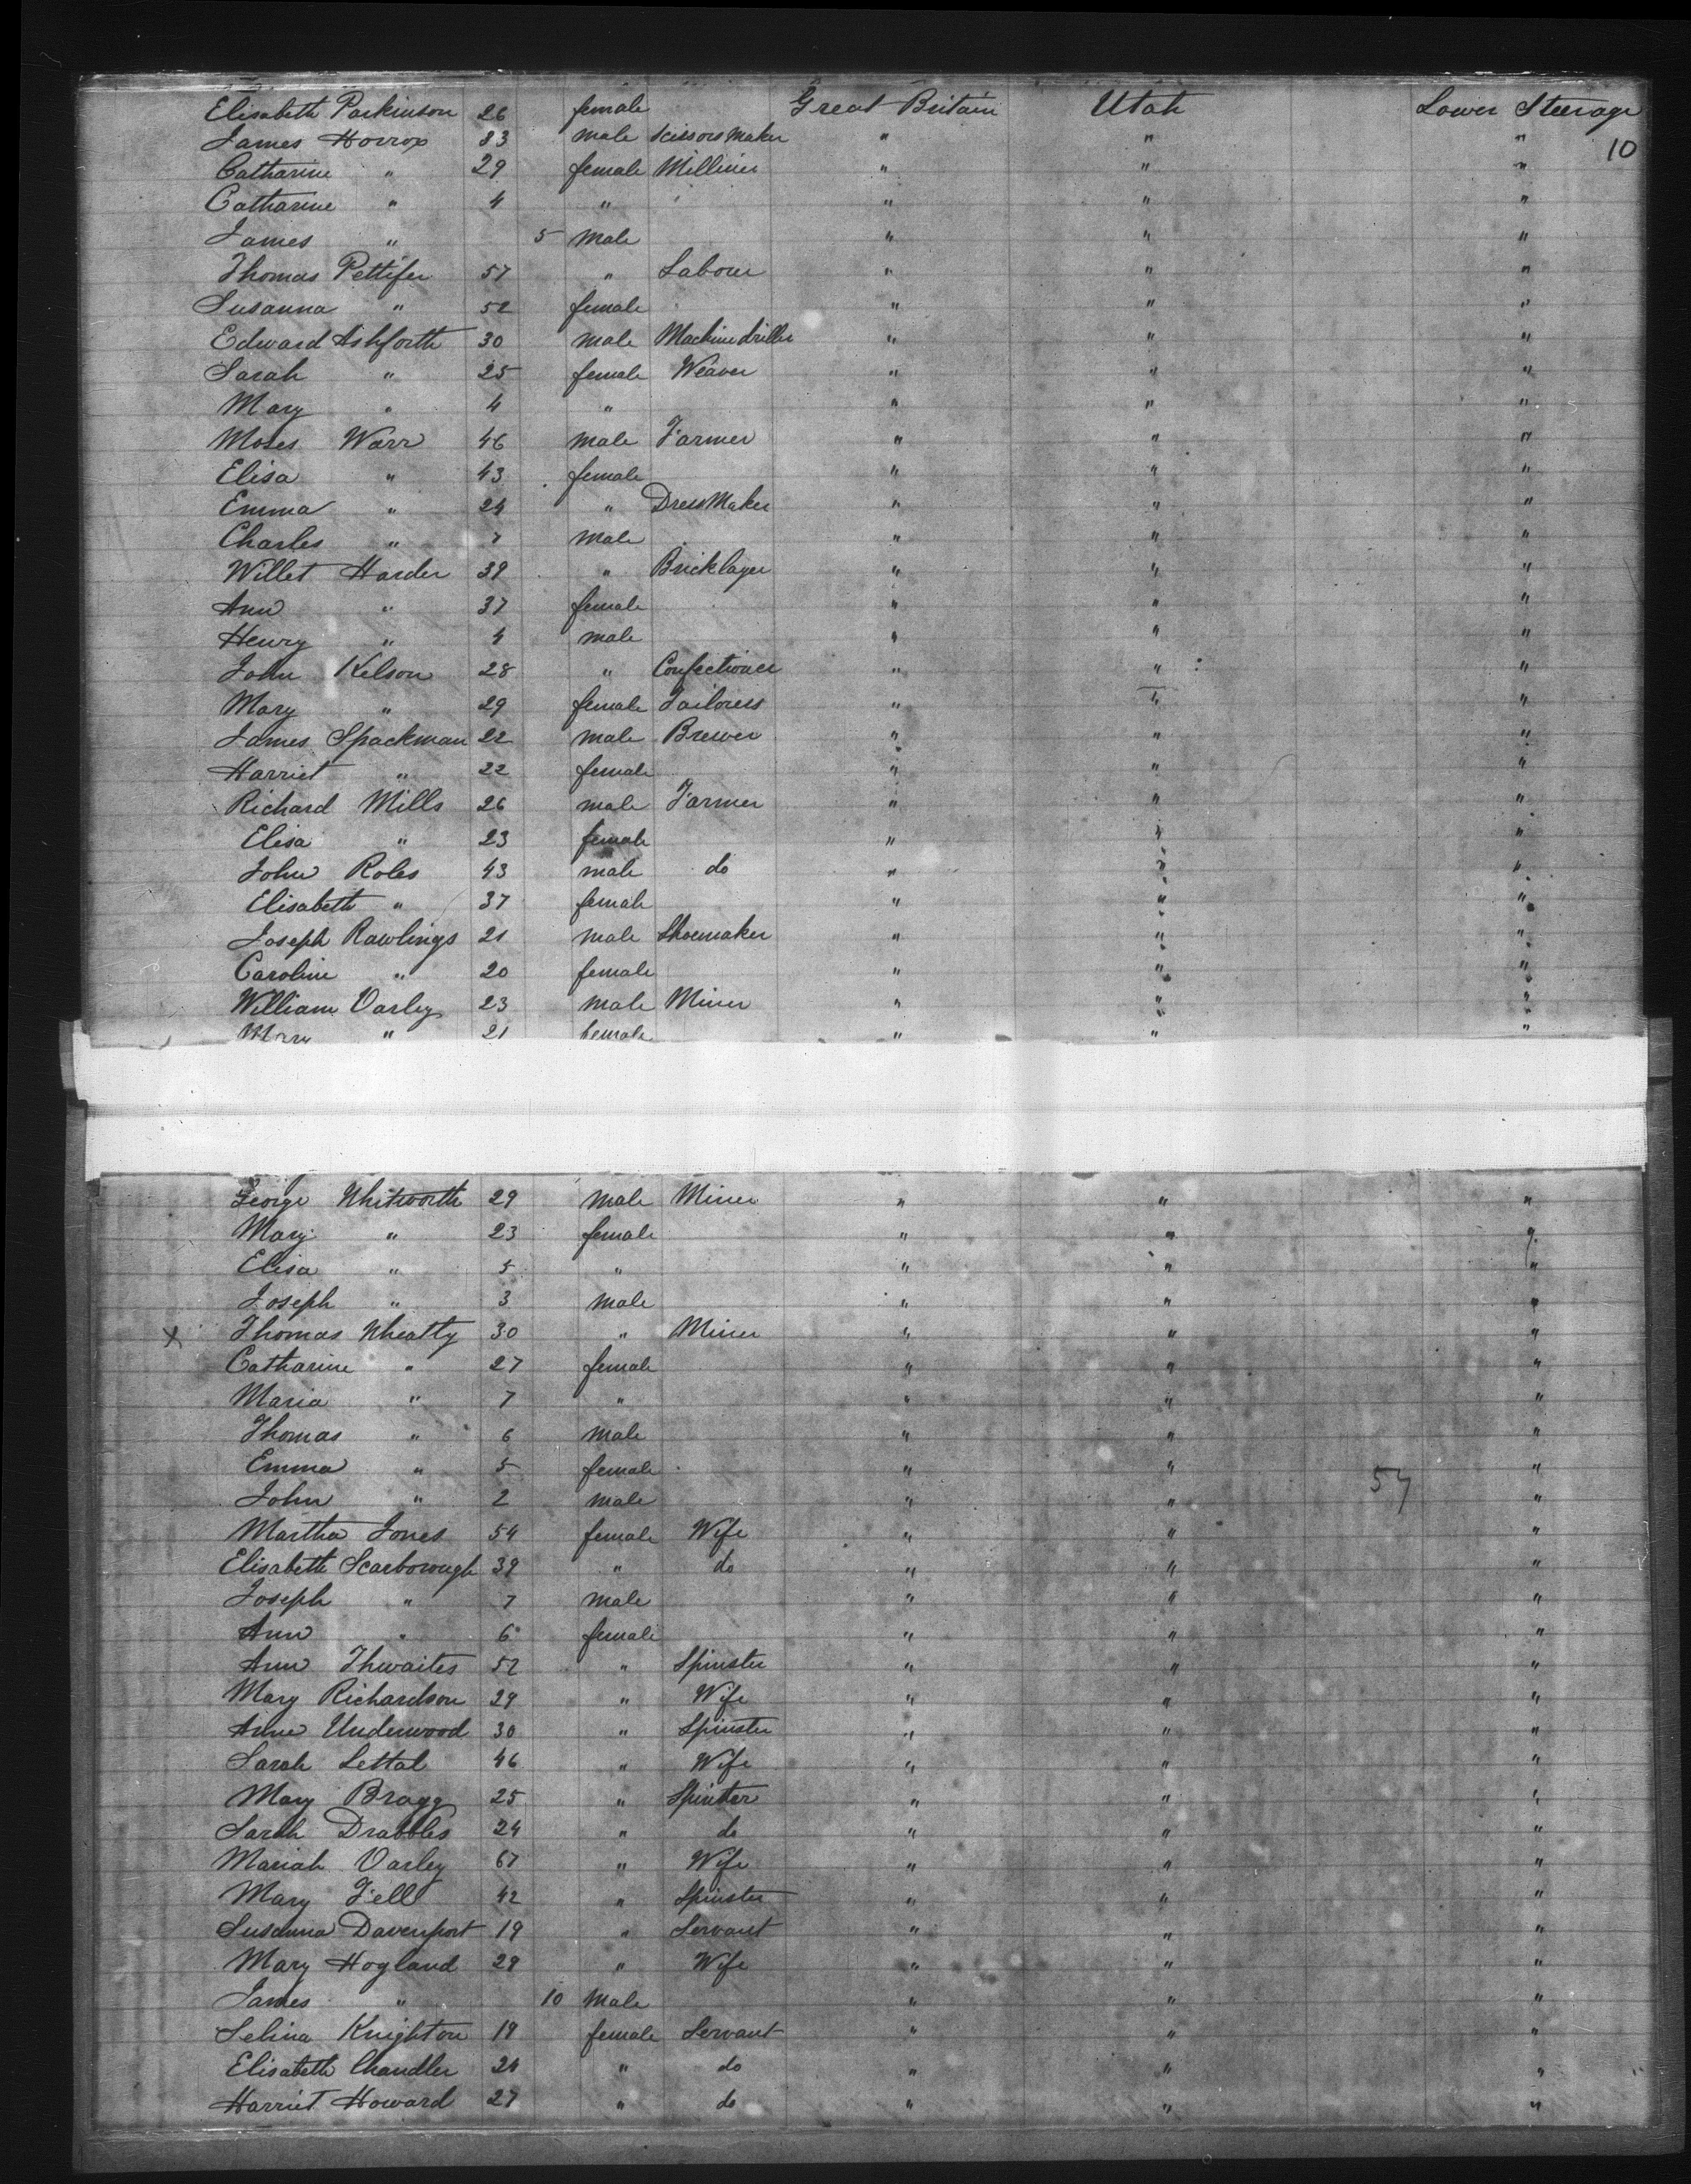 Elisabeth Parkinson 26 female Great Britain Utah Lower Steerage
James Horrox 33 male Scissors Maker " " " 10
Catharine " 29 female Milliner " " "
Catharine " 4 " " " "
James " 5 male " " "
Thomas Pettifer 57 " Labour " " "
Susanna " 52 female " " "
Edward Ashforth 30 male Machine driller " " "
Sarah " 25 female Weaver " " "
Mary " 4 " " " "
Moses Warr 46 male Farmer " " "
Elisa " 43 female " " "
Emma " 24 " Dress Maker " " "
Charles " 7 male " " "
Willet Harder 39 " Bricklayer " " "
Ann " 37 female " " "
Henry " 4 male " " "
John Kelson 28 " Confectioner " " "
Mary " 29 female Tailoress " " "
James Spackman 22 male Brewer " " "
Harriet " 22 female " " "
Richard Mills 26 male Farmer " " "
Elisa " 23 female " " "
John Roles 43 male do " " "
Elisabeth " 37 female " " "
Joseph Rawlings 21 male Shoemaker " " "
Caroline " 20 female " " "
William Varley 23 male Miner " " "
Mary " 21 female " " "
George Whitworth 29 male Miner " " "
Mary " 23 female " " "
Elisa " 5 " " " "
Joseph " 3 male " " "
x Thomas Wheatly 30 " Miner " " "
Catharine " 27 female " " "
Maria " 7 " " " "
Thomas " 6 male " " "
Emma " 5 female " " "
John " 2 male " " 57 "
Martha Jones 54 female Wife " " "
Elisabeth Scarborough 39 " do " " "
Joseph " 7 male " " "
Ann " 6 female " " "
Ann Thwaites 52 " Spinster " " "
Mary Richardson 29 " Wife " " "
Anne Underwood 30 " Spinster " " "
Sarah Lettal 46 " Wife " " "
Mary Bragg 25 " Spinster " " "
Sarah Drabbles 24 " do " " "
Mariah Varley 67 " Wife " " "
Mary Fell 42 " Spinster " " "
Susanna Davenport 19 " Servant " " "
Mary Hogland 29 " Wife " " "
James " 10 male " " "
Selina Knighton 19 female Servant " " "
Elisabeth Chandler 24 " do " " "
Harriet Howard 27 " do " " "